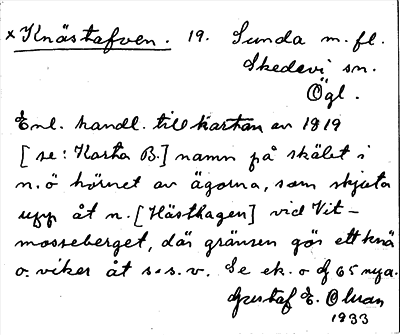 x Knästafven. 19. Sunda m. fl.
Skedevi sn.
Ögl.
Enl. handl. till kartan av 1819
[se: Karta B.] namn på skälet i
n.ö hörnet av ägorna, som skjuta
upp åt n. [Hästhagen] vid Vit-
mosseberget, där gränsen gör ett knä
o. viker åt s.s.v. Se ek. o df 65 nya.
Gustaf E. Olsson
1933